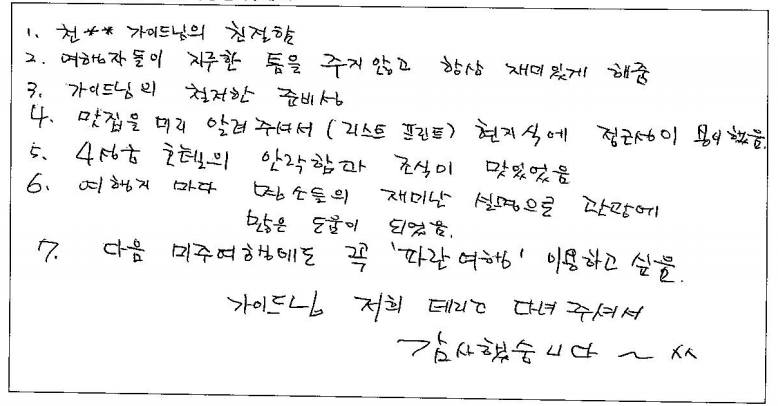 1. 천** 가이드님의 친절함
2. 여행자들이 지루한 틈을 주지않고 항상 재미있게 해줌
3. 가이드님의 철저한 준비성
4. 맛집을 미리 알려주셔서 (리스트 프린트) 현지식에 접근성이 용이했음.
5. 4성급 호텔의 안락함과 조식이 맛있었음
6. 여행지 마다 명소들의 재미난 설명으로 관광에
많은 도움이 되었음.
7. 다음 미주여행에도 꼭 '파란여행' 이용하고 싶음.
가이드님 저희 데리고 다녀 주셔서
감사했습니다 ~ ^^